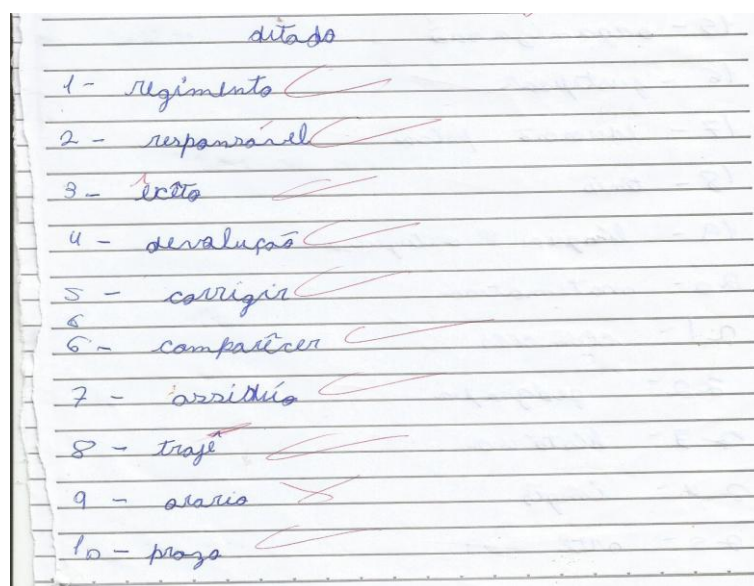 ditado
1 - regimento
2 - responsável
3 - êxito
4 - devolução
5 - corrigir
6
6 - comparêcer
7 - assíduo
8 - trajê
9 - orario
10 - prazo